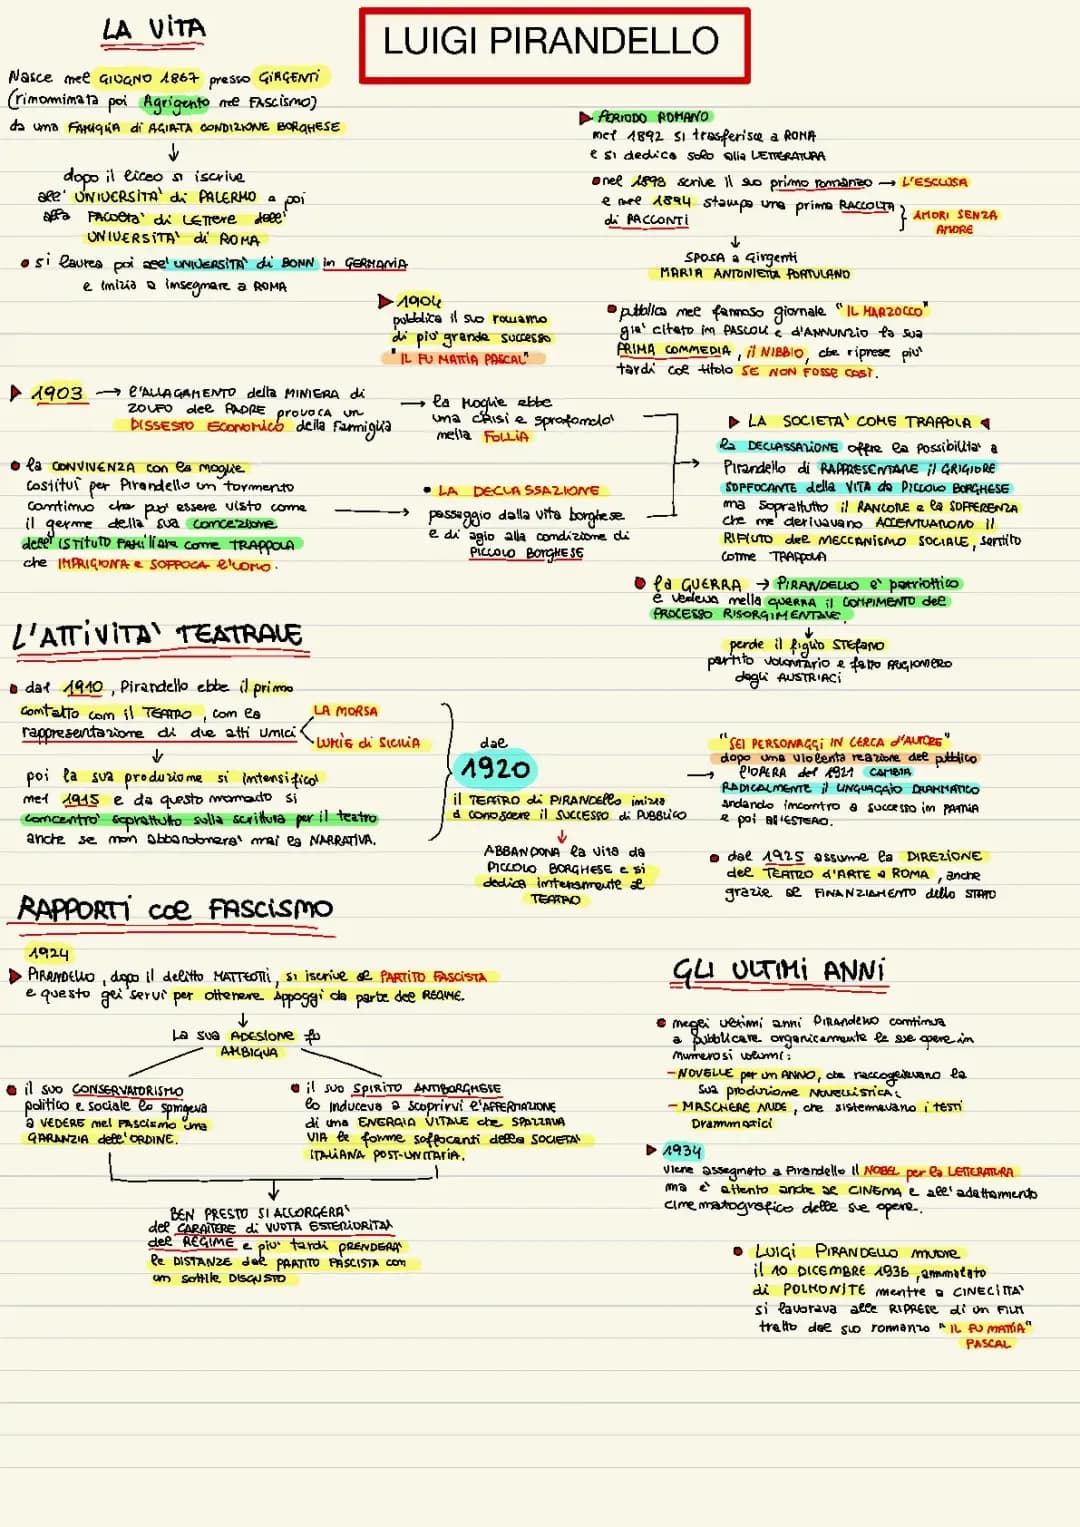 LUIGI PIRANDELLO
LA VITA
Nasce nel GIUGNO 1867 presso GIRGENTI
(rinominata poi Agrigento nel FASCISMO)
da una FAMIGLIA di AGIATA CONDIZIONE BORGHESE
↓
dopo il liceo si iscrive
all' UNIVERSITA' di PALERMO e poi
alla FACOLTA' di LETTERE dell'
UNIVERSITA' di ROMA
• si laurea poi all' UNIVERSITA' di BONN in GERMANIA
e inizia a insegnare a ROMA
PERIODO ROMANO
nel 1892 si trasferisce a ROMA
e si dedica solo alla LETTERATURA
nel 1893 scrive il suo primo romanzo → L'ESCLUSA
e nel 1894 stampa una prima RACCOLTA
di RACCONTI
AMORI SENZA
AMORE
↓
SPOSA a Girgenti
MARIA ANTONIETTA PORTULANO
• pubblica nel famoso giornale "IL MARZOCCO"
gia' citato in PASCOLI e d'ANNUNZIO la sua
PRIMA COMMEDIA, il NIBBIO, che riprese piu'
tardi col titolo SE NON FOSSE COSI'.
1904
pubblica il suo romanzo
di piu' grande successo
"IL FU MATTIA PASCAL"
1903 → l'ALLAGAMENTO della MINIERA di
ZOLFO del PADRE provoca un
DISSESTO ECONOMICO della famiglia
→ la Moglie ebbe
una CRISI e sprofondo'
nella FOLLIA
• la CONVIVENZA con la moglie
costitui' per Pirandello un tormento
continuo che puo' essere visto come
il germe della sua concezione
dell' ISTITUTO FAMILIARE come TRAPPOLA
che IMPRIGIONA e SOFFOCA l'UOMO.
• LA DECLASSAZIONE
passaggio dalla vita borghese
e di agio alla condizione di
PICCOLO BORGHESE
LA SOCIETA' COME TRAPPOLA
la DECLASSAZIONE offre la possibilita' a
Pirandello di RAPPRESENTARE il GRIGIORE
SOFFOCANTE della VITA da PICCOLO BORGHESE
ma soprattutto il RANCORE e la SOFFERENZA
che ne derivavano ACCENTUARONO il
RIFIUTO del MECCANISMO SOCIALE, sentito
come TRAPPOLA
• la GUERRA → PIRANDELLO e' patriottico
e vedeva nella guerra il COMPIMENTO del
PROCESSO RISORGIMENTALE
↓
perde il figlio STEFANO
partito volontario e fatto PRIGIONIERO
dagli AUSTRIACI
L'ATTIVITA' TEATRALE
• dal 1910, Pirandello ebbe il primo
contatto con il TEATRO, con la
rappresentazione di due atti unici
LA MORSA
LUMIE di SICILIA
↓
poi la sua produzione si intensifico'
nel 1915 e da questo momento si
concentro' soprattutto sulla scrittura per il teatro
anche se non abbandonera' mai la NARRATIVA.
dal
1920
il TEATRO di PIRANDELLO inizia
a conoscere il SUCCESSO di PUBBLICO
↓
ABBANDONA la vita da
PICCOLO BORGHESE e si
dedica interamente al
TEATRO
"SEI PERSONAGGI IN CERCA d'AUTORE"
dopo una violenta reazione del pubblico
l'OPERA del 1921 CAMBIA
RADICALMENTE il LINGUAGGIO DRAMMATICO
andando incontro a successo in PATRIA
e poi all'ESTERO.
• dal 1925 assume la DIREZIONE
del TEATRO d'ARTE a ROMA, anche
grazie al FINANZIAMENTO dello STATO
RAPPORTI col FASCISMO
1924
PIRANDELLO, dopo il delitto MATTEOTTI, si iscrive al PARTITO FASCISTA
e questo gli servi' per ottenere appoggi da parte del REGIME.
↓
La sua ADESIONE fu
AMBIGUA
• il suo CONSERVATORISMO
politico e sociale lo spingeva
a VEDERE nel FASCISMO una
GARANZIA dell'ORDINE.
• il suo SPIRITO ANTIBORGHESE
lo induceva a scoprirvi l'AFFERMAZIONE
di una ENERGIA VITALE che SPAZZAVA
VIA le forme soffocanti della SOCIETA'
ITALIANA POST-UNITARIA.
BEN PRESTO SI ACCORGERA'
del CARATTERE di VUOTA ESTERIORITA'
del REGIME e piu' tardi PRENDERA'
le DISTANZE dal PARTITO FASCISTA con
un sottile DISGUSTO
GLI ULTIMI ANNI
• negli ultimi anni PIRANDELLO continua
a pubblicare organicamente le sue opere in
numerosi volumi:
- NOVELLE per un ANNO, che raccoglievano la
sua produzione NOVELLISTICA;
- MASCHERE NUDE, che sistemavano i testi
Drammatici
1934
viene assegnato a Pirandello il NOBEL per la LETTERATURA
ma e' attento anche al CINEMA e all'adattamento
cinematografico delle sue opere.
• LUIGI PIRANDELLO muore
il 10 DICEMBRE 1936, ammalato
di POLMONITE mentre a CINECITTA'
si lavorava alle RIPRESE di un FILM
tratto dal suo romanzo "IL FU MATTIA"
PASCAL